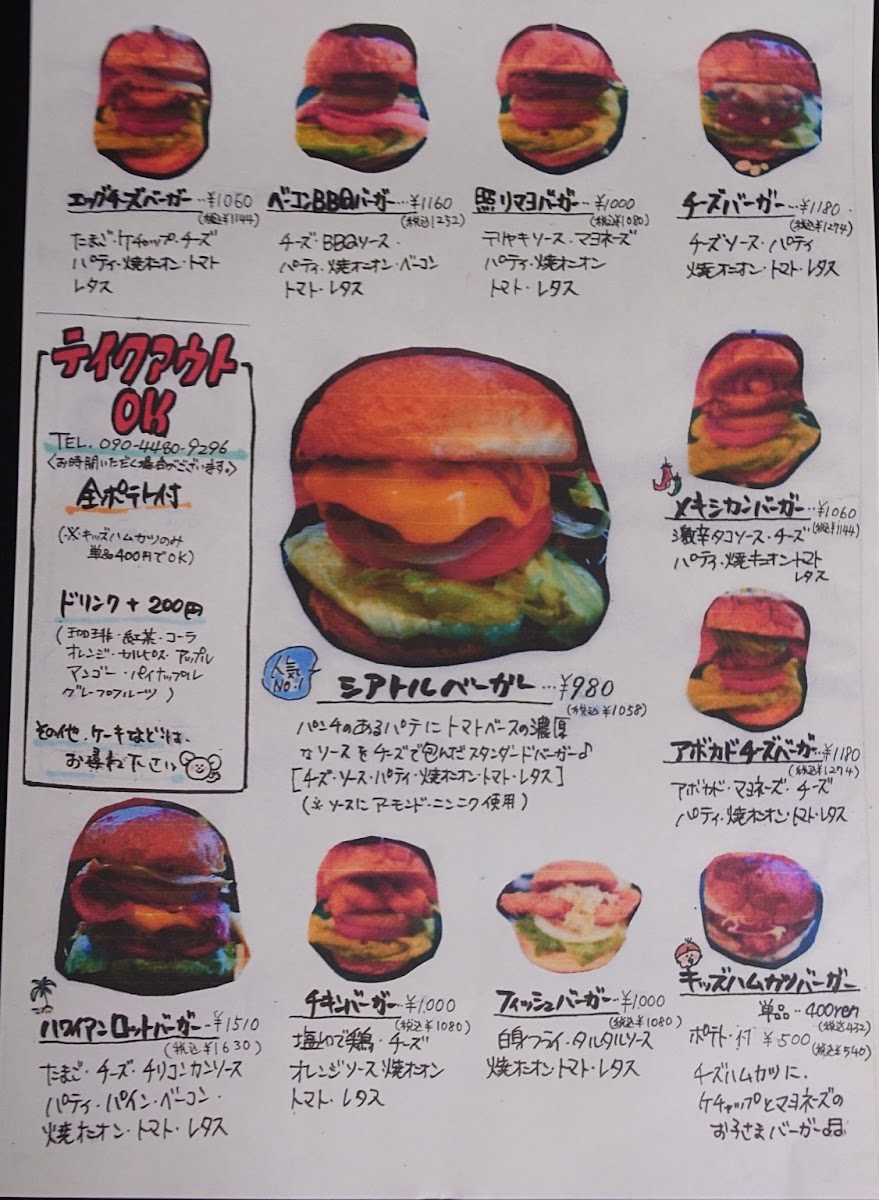 エッグチーズバーガー…¥1060
(税込¥1144)
たまご・ケチャップ・チーズ
パティ・焼オニオン・トマト
レタス
ベーコンBBQバーガー…¥1160
(税込1252)
チーズ・BBQソース・
パティ・焼オニオン・ベーコン
トマト・レタス
照リマヨバーガー…¥1000
(税込¥1080)
テリヤキソース・マヨネーズ
パティ・焼オニオン
トマト・レタス
チーズバーガー…¥1180
(税込¥1274)
チーズソース・パティ
焼オニオン・トマト・レタス
テイクアウト
OK
TEL. 090-4480-9296
<お時間いただく場合がございます。>
全ポテト付
(※キッズハムカツのみ
単品400円でOK)
ドリンク+200円
(珈琲・紅茶・コーラ
オレンジ・カルピス・アップル
マンゴー・パイナップル
グレープフルーツ)
その他、ケーキなどは、
お尋ね下さい
人気
NO.1
シアトルバーガー…¥980
(税込¥1058)
パンチのあるパテにトマトベースの濃厚
なソースをチーズで包んだスタンダードバーガー♪
[チーズ・ソース・パティ・焼オニオン・トマト・レタス]
(※ソースにアーモンド・ニンニク使用)
メキシカンバーガー…¥1060
(税込¥1144)
激辛タコソース・チーズ
パティ・焼オニオントマト
レタス
アボカドチーズバーガー…¥1180
(税込¥1274)
アボカド・マヨネーズ・チーズ
パティ・焼オニオン・トマト・レタス
ハワイアンロットバーガー…¥1510
(税込¥1630)
たまご・チーズ・チリコンカンソース
パティ・パイン・ベーコン・
焼オニオン・トマト・レタス
チキンバーガー…¥1,000
(税込¥1080)
塩ゆで鶏・チーズ
オレンジソース 焼オニオン
トマト・レタス
フィッシュバーガー…¥1,000
(税込¥1080)
白身フライ・タルタルソース
焼オニオン・トマト・レタス
キッズハムカツバーガー
単品…400yen
(税込432)
ポテト・付 ¥500
(税込¥540)
チーズハムカツに、
ケチャップとマヨネーズの
お子さまバーガー♪